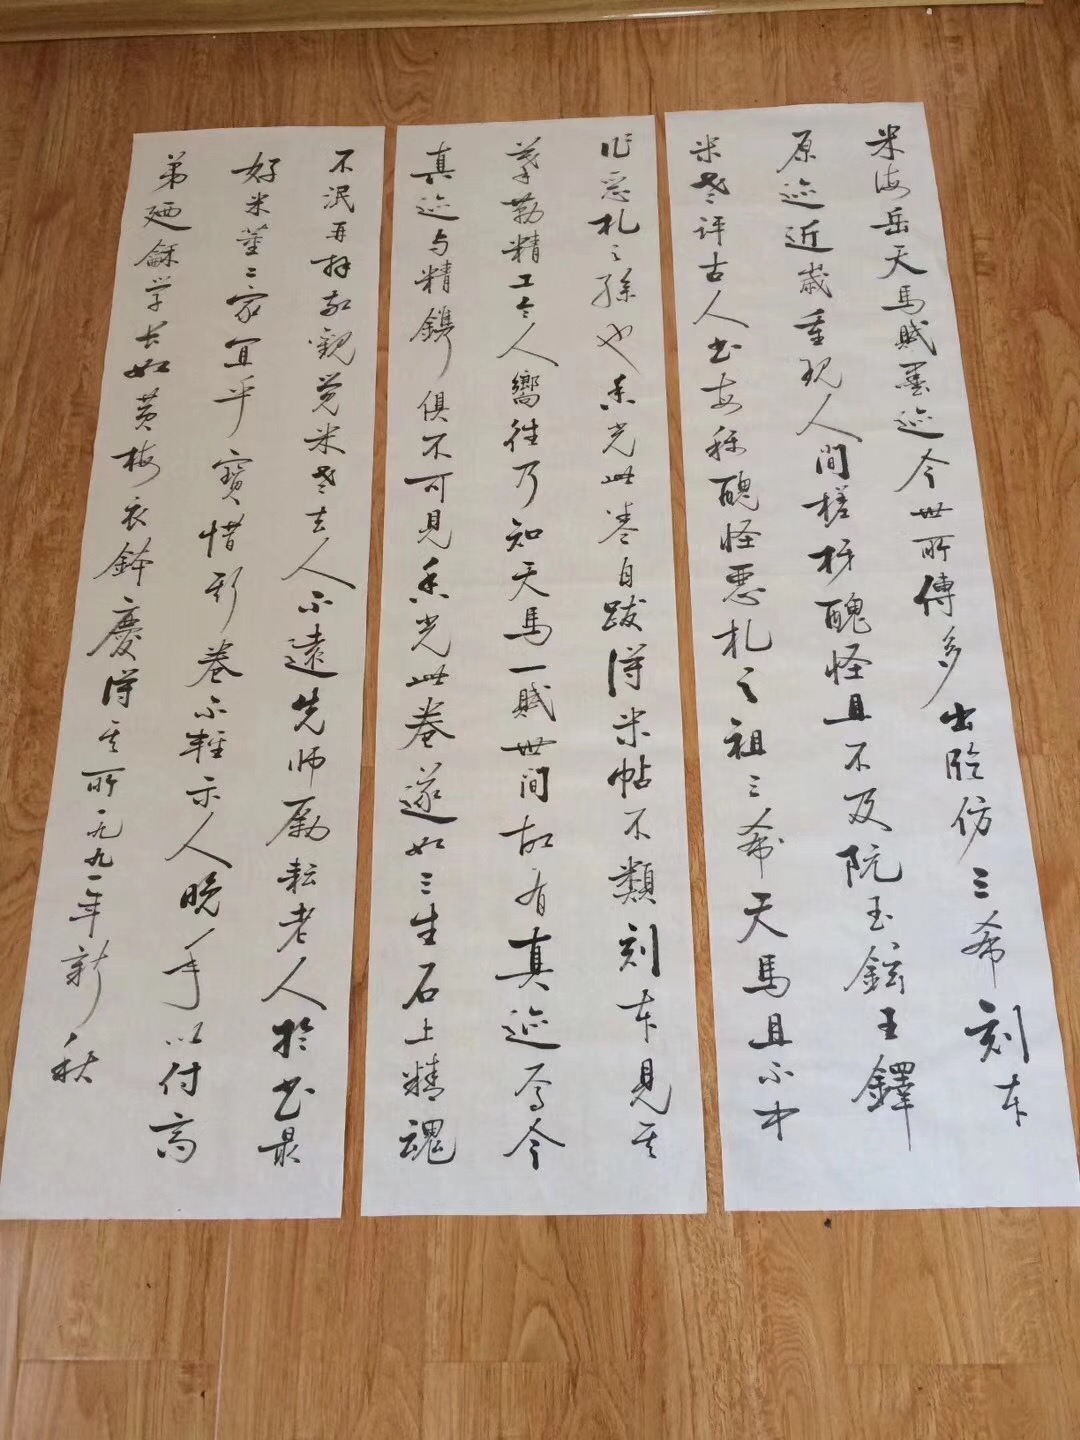 米海岳天馬賦墨迹今世所傳多出臨仿三希刻本
原迹近歲重現人間槎枒醜怪且不及阮玉鉉王鐸
米老評古人書每稱醜怪惡札之祖三希天馬且不中
作惡札之孫也香光此卷自跋得米帖不類刻本見其
摹勒精工令人嚮往乃知天馬一賦世間故有真迹焉今
真迹与精鐫俱不可見香光此卷遂如三生石上精魂
不泯再拜敬觀覺米老去人不遠先师励耘老人於书最
好米董二家宜乎寶惜斯卷不輕示人晚年以付高
弟廼龢学长如黄梅衣鉢慶得其所一九九一年新
秋